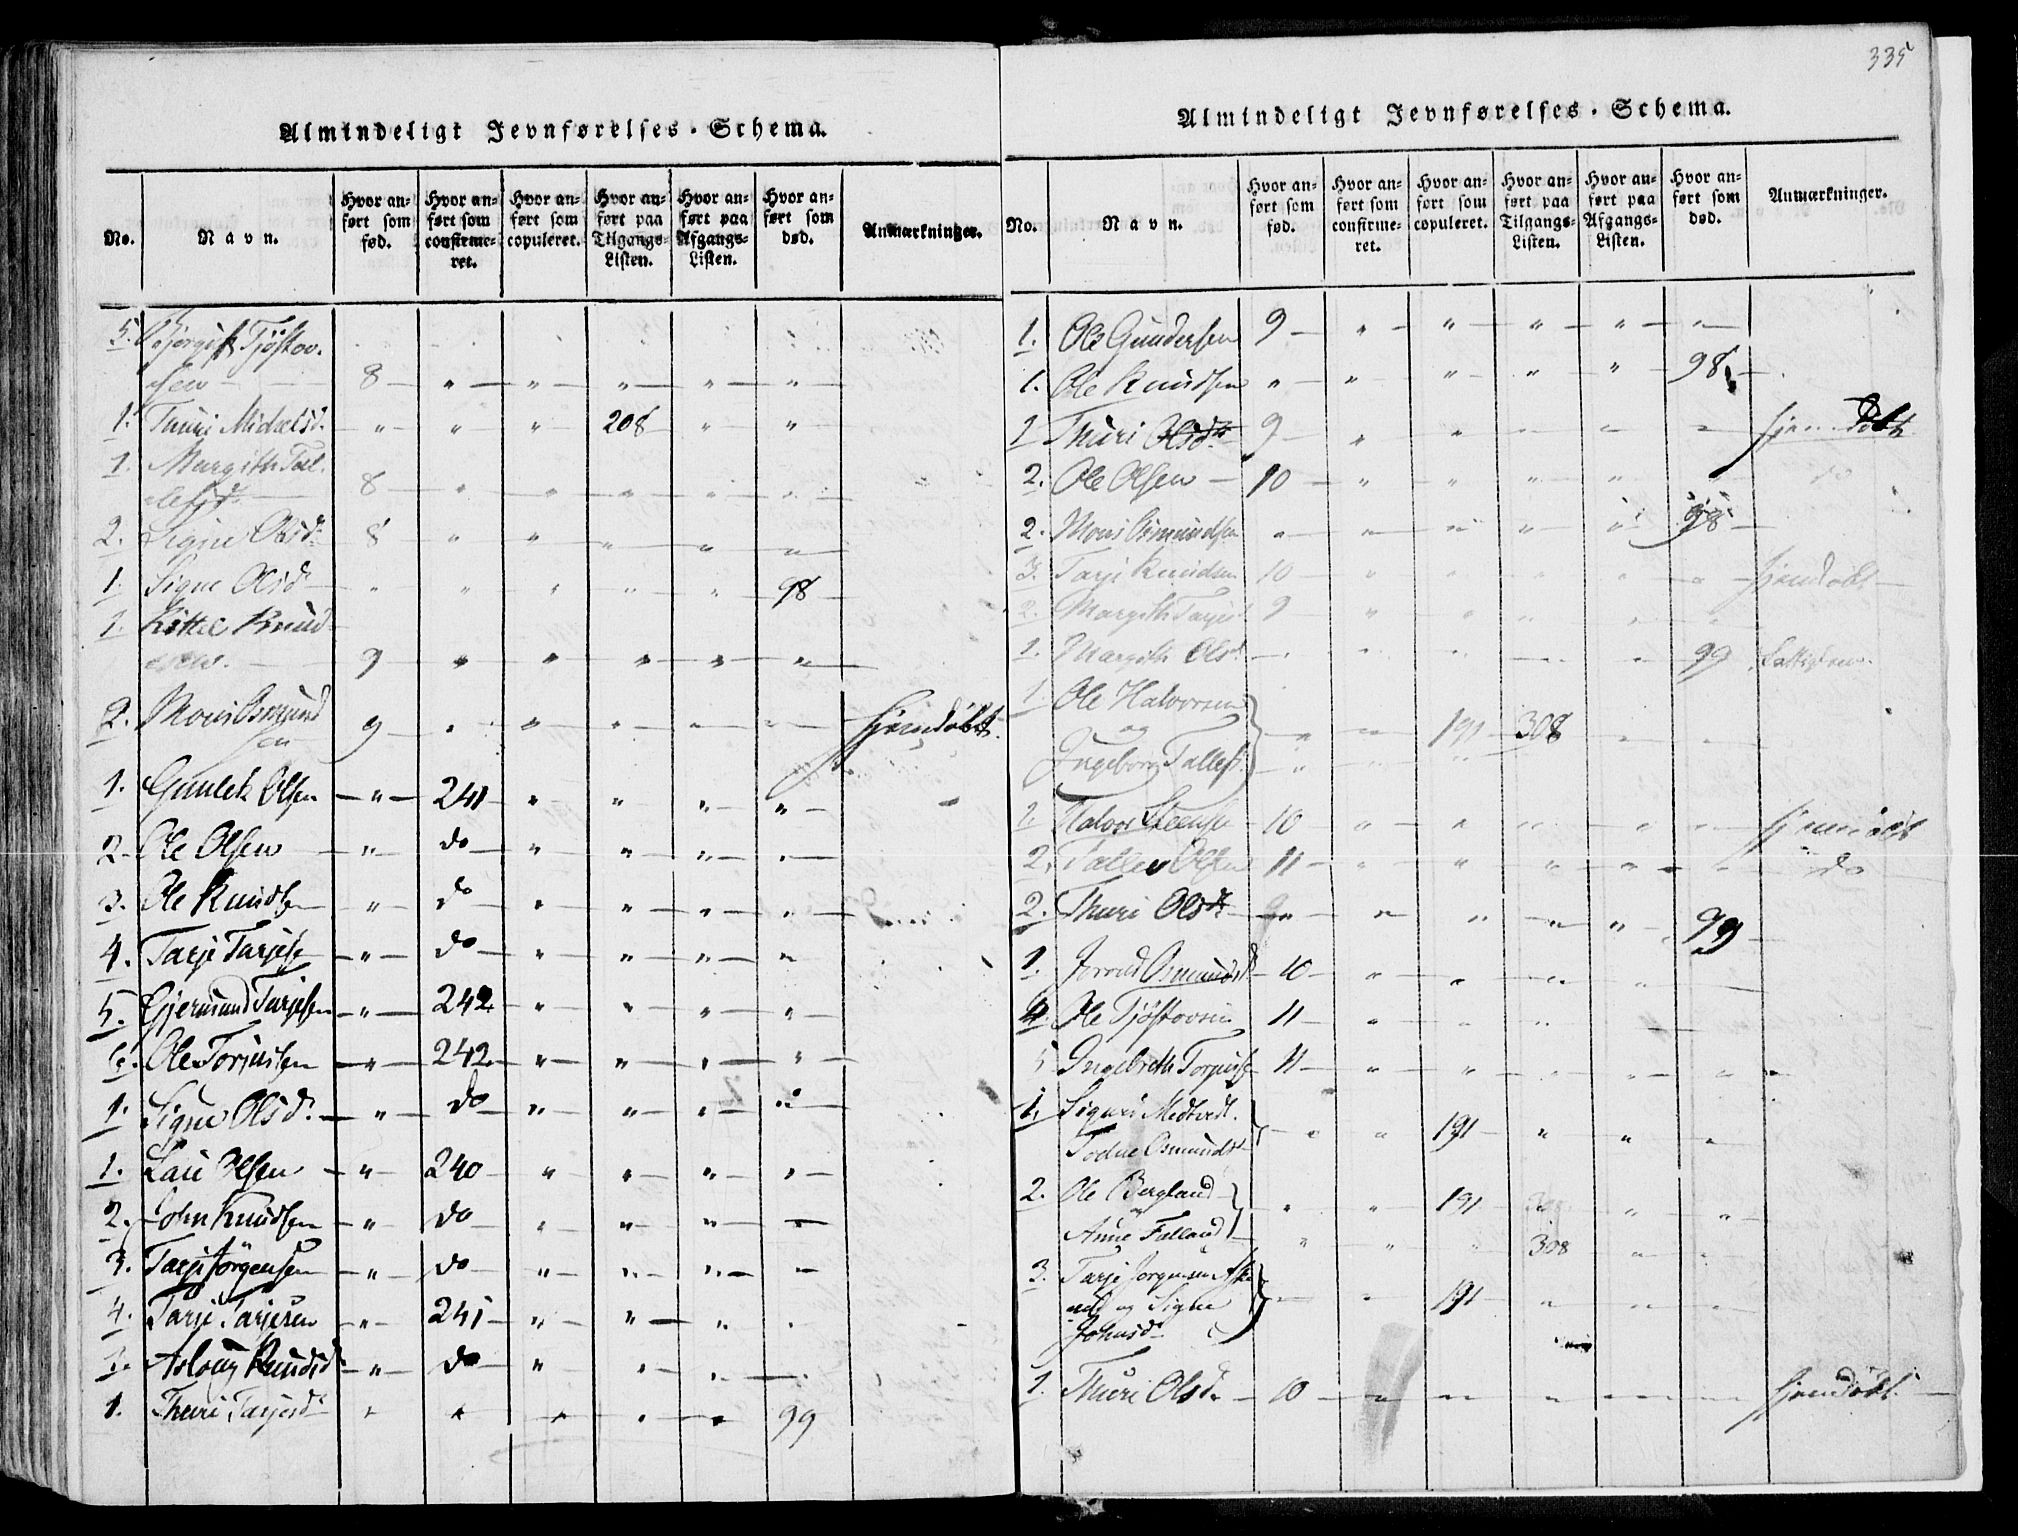 335
Almindeligt Jevnførelses-Schema.
No. Navn. Hvor anført som fød. Hvor anført som confirmeret. Hvor anført som copuleret. Hvor anført paa Tilgangs-Listen. Hvor anført paa Afgangs-Listen. Hvor anført som død. Anmærkninger.
5. Tjøstov-
sen 8 " " " " "
1. Thuri Michelsd. " " " 208 " "
1. Margith Tal-
lefsdr. 8 " " " " "
2. Signe Olsdr. 8 " " " " "
1. Signe Olsd " " " " " 98
1. Kittel Knud-
sen. 9 " " " " "
2. Mons Osmund
sen 9 " " " " " hjemdøbt.
1. Gunlek Olsen " 241 " " " "
2. Ole Olsen " do " " " "
3. Ole Knudsen " do " " " "
4. Tarje Tarjesen " do " " " "
5. Gjermund Tarjesen " 242 " " " "
6. Ole Torjusen " 242 " " " "
1. Signe Olsd. " do " " " "
1. Lau Olsen " 240 " " " "
2. John Knudsen " do " " " "
3. Tarje Jörgensen " do " " " "
4. Tarje Tarjesen " 241 " " " "
1. Asloug Knudsd " do " " " "
1. Thuri Tarjesd " " " " " 99
Almindeligt Jevnførelses-Schema.
No. Navn. Hvor anført som fød. Hvor anført som confirmeret. Hvor anført som copuleret. Hvor anført paa Tilgangs-Listen. Hvor anført paa Afgangs-Listen. Hvor anført som død. Anmærkninger.
1. Ole Gundersen 9 " " " " "
1. Ole Knudsen " " " " " 98
1 Thuri Olsdr 9 " " " " " hjemdøbt
2. Ole Olsen 10 " " " " " do
2. Mons Osmundsen " " " " " 98
3. Tarje Knudsen 10 " " " " " hjemdøbt
2. Margith Tarjesd 9 " " " " "
1. Margith Olsd " " " " " 99
1. Ole Halvorsen
og " " 191 308 " "
Ingeborg Tallefsd. " " "
1. Halvor Steensen 10 " " " " " hjemdøbt
2. Tallev Olsen 11 " " " " " do
2. Thuri Olsdr " " " " " 99
1. Jorand Osmundsd 10 " " " " "
4. Ole Tjöstovsen 11 " " " " "
5 Ingebreth Torjusen 11 " " " " "
1. Sigurd
Osmundsd " " 191 " " "
2. Ole Bergland
" " 191 " "
Anne Falland " " " 308 " "
3. Tarje Jorgensen
og Signe " " 191 " " "
Johnsd
1. Thuri Olsd. 10 " " " " " hjemdøbt.